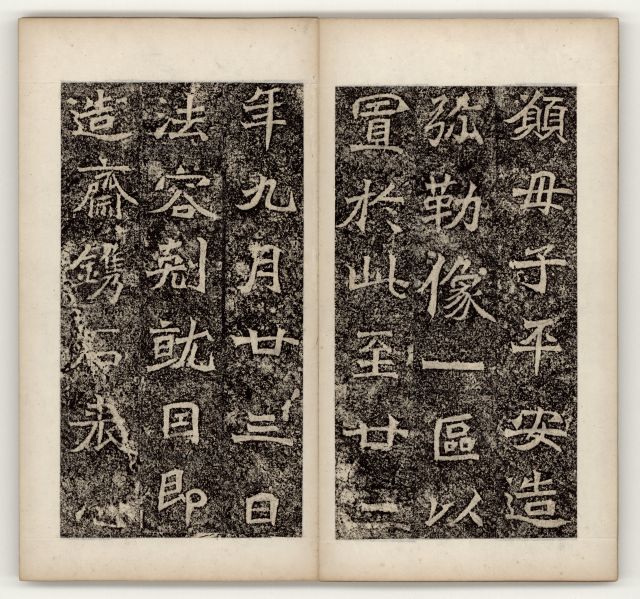 願母子平安造
弥勒像一區以
置於此至廿二
年九月廿三日
法容剋就因即
造齋鐫石表心